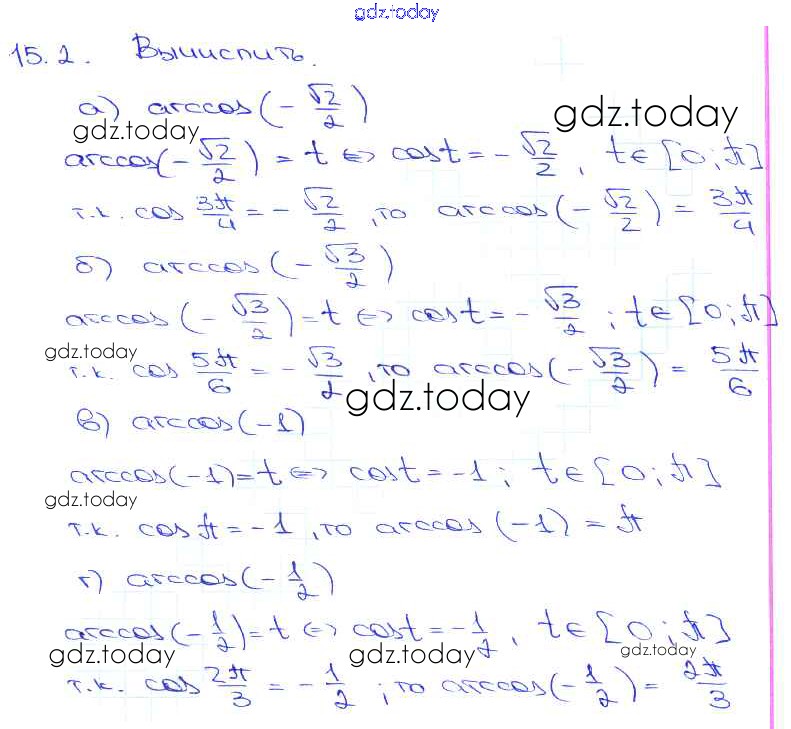 gdz.today
15.2. Вычислить.
а) arccos(-√2/2)
gdz.today gdz.today
arccos(-√2/2) = t ⇔ cos t = -√2/2, t ∈ [0; π]
т.к. cos 3π/4 = -√2/2, то arccos(-√2/2) = 3π/4
б) arccos(-√3/2)
arccos(-√3/2) = t ⇔ cos t = -√3/2; t ∈ [0; π]
gdz.today
т.к. cos 5π/6 = -√3/2, то arccos(-√3/2) = 5π/6
gdz.today
в) arccos(-1)
arccos(-1) = t ⇔ cos t = -1; t ∈ [0; π]
gdz.today
т.к. cos π = -1, то arccos(-1) = π
г) arccos(-1/2)
arccos(-1/2) = t ⇔ cos t = -1/2, t ∈ [0; π]
gdz.today gdz.today gdz.today
т.к. cos 2π/3 = -1/2; то arccos(-1/2) = 2π/3